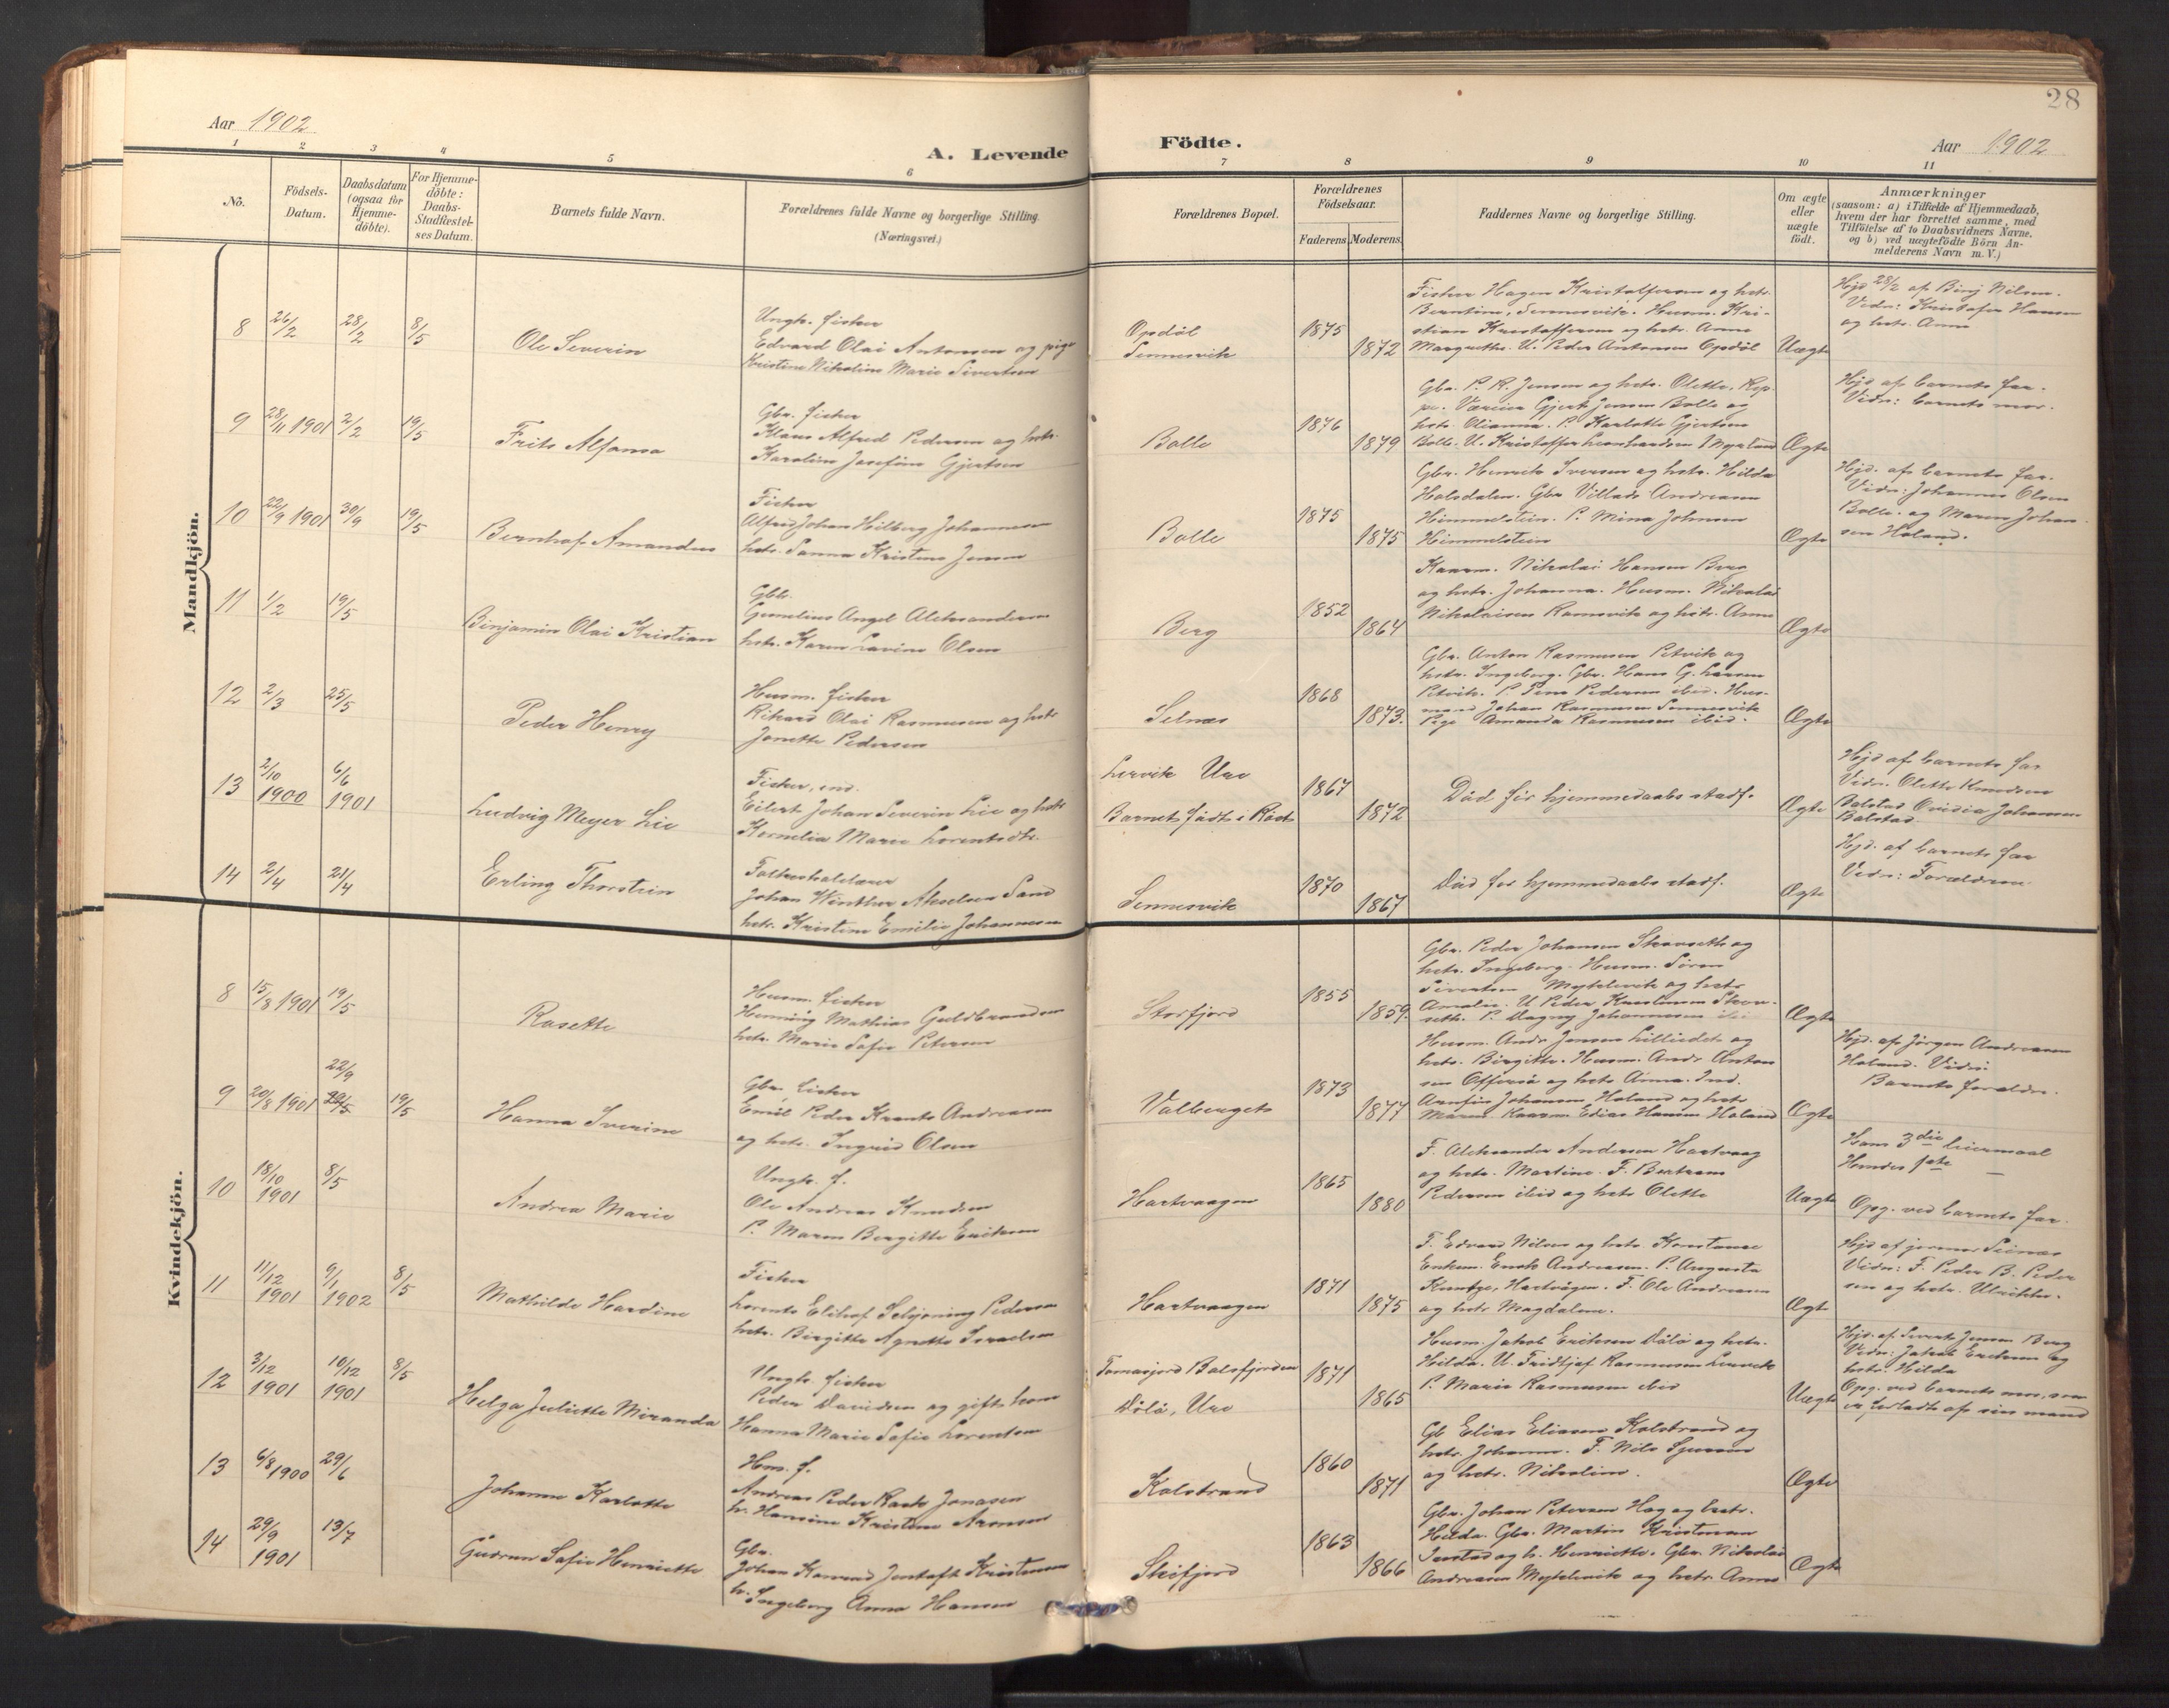 28
Aar 1902
A. Levende
Födte.
Aar 1902
1 2 3 4 5 6 7 8 9 10 11
Nö.
Födsels-
Datum.
Daabsdatum
(ogsaa for
Hjemme-
döbte).
For Hjemme-
döbte:
Daabs-
Stadfæstel-
ses Datum.
Barnets fulde Navn.
Forældrenes fulde Navne og borgerlige Stilling.
(Næringsvei.)
Forældrenes Bopæl.
Forældrenes
Födselsaar.
Faderens. Moderens.
Faddernes Navne og borgerlige Stilling.
Om ægte
eller
uægte
födt.
Anmærkninger
(saasom: a) i Tilfælde af Hjemmedaab,
hvem der har forrettet samme, med
Tilföielse af to Daabsvidners Navne,
og b) ved uægtefödte Börn An-
melderens Navn m. V.)
Mandkjön.
8 26/2 28/2 8/5
Ole Severin
Ungk. fisker
Edvard Olai Antonsen og pige
Kristine Nikoline Marie Sivertsen
Opdöl
Sennesvik
1875
1872
Fisker Hagen Kristoffersen og hstr.
Berntine, Sennesvik. Husm. Kri-
stian Kristoffersen og hstr. Anne
Margrethe. U. Peder Antonsen Opdöl
Uægte
Hjd 28/2 af Binj Nilsen.
Vidn: Kristofer Hansen
og hstr. Anna
9 28/11 1901 2/2 19/5
Frits Alfonso
Gbr. fisker
Klaus Alfred Pedersen og hstr.
Karoline Josefine Gjertsen
Bolle
1876
1879
Gbr. P. R. Jensen og hstr. Olette, Rep-
pe. Væreier Gjert Jensen Bolle og
hstr. Olianna. P. Karlotte Gjertsen
Bolle. U. Kristoffer Leonhardsen Myrland
Ægte
Hjd af barnets far.
Vidn: barnets mor.
10 22/9 1901 30/9 19/5
Bernhof Amandus
Fisker
Alfred Johan Hilberg Johannesen
hstr. Sanna Kristine Jensen
Bolle
1875
1875
Gbr. Henrik Iversen og hstr. Hilda
Holsdalen. Gbr Villads Andreasen
Himmelstein. P. Mina Johnsen
Himmelstein
Ægte
Hjd. af barnets far.
Vidn: Johannes Olsen
Bolle. og Maren Johan-
sen Holand.
11 1/2 19/5
Binjamin Olai Kristian
Gbr.
Gunelius Angel Aleksandersen
hstr. Karen Lavine Olsen
Berg
1852
1864
Kaarm. Nikolai Hansen Berg
og hstr. Johanna. Husm. Nikolai
Nikolaisen Ramsvik og hstr. Anne
Ægte
12 2/3 25/5
Peder Henry
Husm. fisker
Rikard Olai Rasmusen og hstr
Jonette Pedersen
Selnes
1868
1873.
Gbr. Anton Rasmusen Petvik og
hstr. Ingeborg. Gbr. Hans G. Larsen
Petvik. P. Sina Pedersen ibid. Hus-
mand Johan Rasmusen Sennesvik
Pige Amanda Rasmusen ibid.
Ægte
13 2/10 1900 6/6 1901
Ludvig Meyer Lie
Fisker, ind.
Eilert Johan Severin Lie og hstr
Kornelia Marie Lorentsdtr.
Lervik Ure
Barnet födt i Röst
1867
1872
Död för hjemmedaabs stadf.
Ægte
Hjd af barnets far
Vidn. Olette Knudsen
Balstad Ovidia Johansen
Balstad
14 2/4 21/4
Erling Thorstein
Folkeskolelærer
Johan Winther Akselsen Sand
hstr. Kristine Emilie Johannesen
Sennesvik
1870
1867
Död för hjemmedaabs stadf.
Ægte
Hjd. af barnets far
Vidn: Forældrene.
Kvindekjön.
8 15/8 1901 19/5
Rosette
Husm. fisker
Henning Mathias Guldbrandsen
hstr. Marie Sofie Petersen
Storfjord
1855
1859.
Gbr. Peder Johansen Skorseth og
hstr. Ingeborg. Husm. Sören
Sivertsen Myklevik og hstr
Amalie. U. Peder Karlsen Skor-
seth. P. Dagny Johannesen ibi
Ægte
9 20/8 1901 22/9 19/5
Hanna Iverine
Gbr. Fisker
Emil Peder Krants Andreasen
og hstr. Ingrid Olsen
Valberget
1873
1877
Husm. Andr Jensen Lilleidet og
hstr. Birgitte. Husm. Andr Anton
sen Offersö og hstr Anna. Ind.
Arnfin Johansen Holand og hstr
Maren. Kaarm. Edias Hansen Holand
Ægte
Hjd. af Jörgen Andreasen
Holand. Vidn:
Barnets foreldr.
10 18/10 1901 8/5
Andrea Marie
Ungk. f.
Ole Andreas Knudsen
P. Maren Birgitte Eriksen
Hartvaagen
1865
1880
F. Aleksander Andersen Hartvaag
og hstr. Martine. F. Bertram
Pedersen ibid og hstr Olette
Uægte
Hans 3die leiermaal
Hendes 1ste —
Opg. ved barnets far.
11 11/12 1901 9/1 1902 8/5
Mathilde Hardine
Fisker
Lorents Elihof Schjöning Pedersen
hstr. Birgitte Agnette Israelsen
Hartvaagen
1871
1875
F. Edvard Nilsen og hstr. Konstanse
Enkem. Enok Andreasen. P. Augusta
Hartvågen. F. Ole Andreasen
og hstr Magdalene.
Ægte
Hjd af jormor Steines
Vidn: F. Peder B. Peder
sen og hstr. Ulrikke.
12 3/12 1901 10/12 1901 8/5
Helga Juliette Miranda
Ungk. fisker
Peder Davidsen og gift kone
Hanna Marie Sofie Lorentsen
Tomasjord Balsfjorden
Dölö, Ure
1871
1865
Husm. Jakob Eriksen Dölö og hstr.
Hilda. U. Fridtjof Rasmussen Lervik
P. Marie Rasmussen ibid
Uægte
Hjd. af Sivert Jensen Berg
Vidn: Jakob Eriksen og
hstr. Hilda
Opg. ved barnets mor, som
er forladt af sin mand
13 6/8 1900 29/6
Johanne Karlotte
Hm. f.
Andreas Peder Rask Jonasen
h. Hansine Kristine Aronsen
Kolstrand
1860
1871
Gb Elias Eliasen Kolstrand og
hstr. Johanna. F. Nils Sjursen
og hstr. Nikoline.
Ægte
14 29/9 1901 13/7
Gudrun Sofie Henriette
Gbr.
Johan Konrad Jentoft Kristensen
h. Ingeborg Anna Hansen
Steifjord
1863
1866
Gbr. Johan Petersen Hag og hstr.
Hilda. Gbr. Martin Kristensen
Justad og h. Henriette. Gbr. Nikolai
Andreasen Myklevik og hstr Anne
Ægte